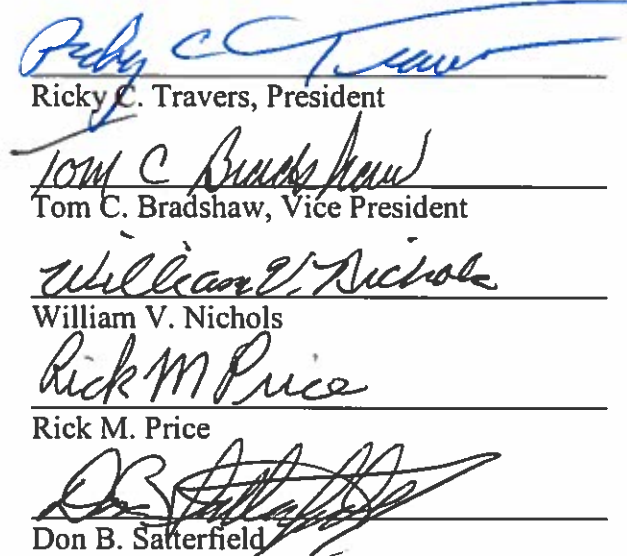 Ricky C Travers
Ricky C. Travers, President
Tom C Bradshaw
Tom C. Bradshaw, Vice President
William V. Nichols
William V. Nichols
Rick M Price
Rick M. Price
Don B. Satterfield
Don B. Satterfield